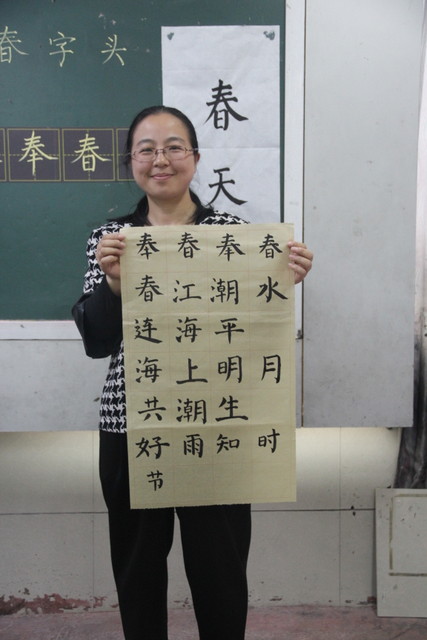 春字头
奉春
春
天
奉春奉春
春江潮水
连海平
海上明月
共潮生
好雨知时
节